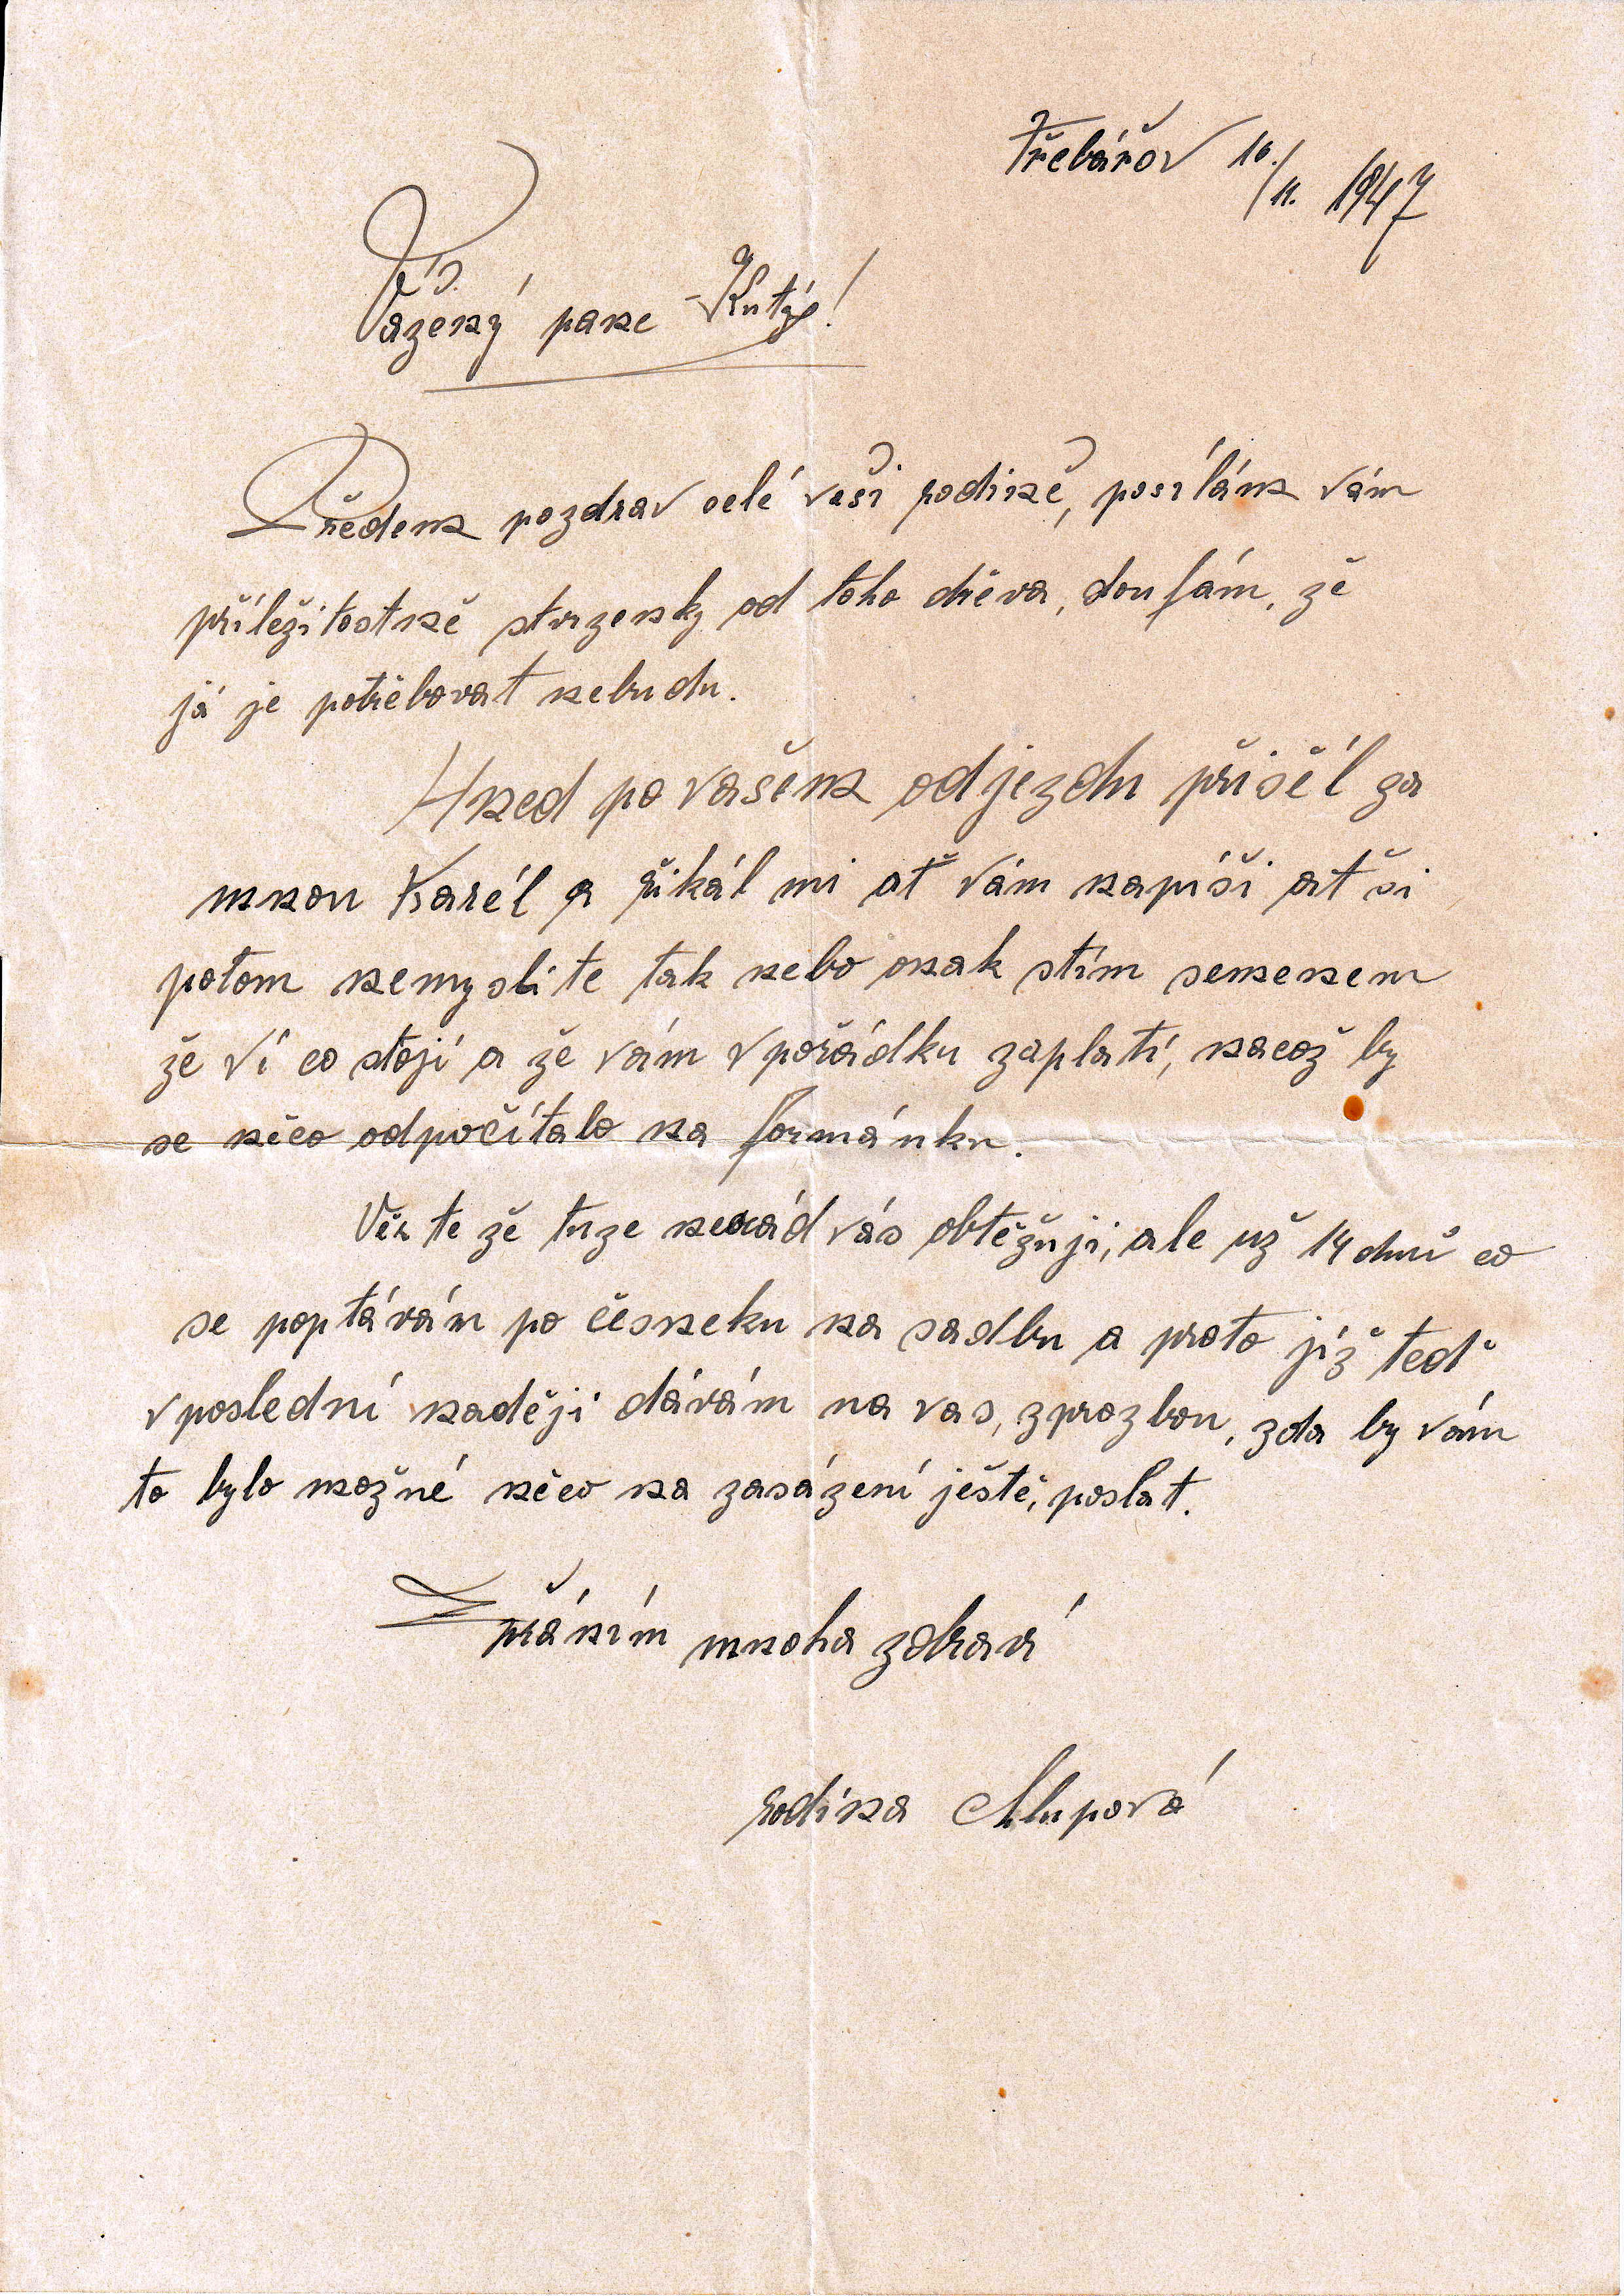 Třebářov 10./11. 1947
Vážený pane Kutý!
Předem pozdrav celé vaší rodině, posílám vám
příležitostně stvrzenky od toho dřeva, doufám, že
já je potřebovat nebudu.
Hned po vašem odjezdu přišél za
mnou Karél a řikál mi ať vám napíši ať si
potom nemyslite tak nebo onak stím semenem
že ví co stojí a že vám vpořádku zaplatí, načož by
se něco odpočítalo na formánku.
Věrte že tuze nerád vás obtěžuji, ale už 14 dnů co
se poptávám po česneku na sadbu a proto jíž teď
vposlední naději dávám na vas, zprozbou, zda by vám
to bylo možné něco na zasázení ještě, poslat.
Zpřáním mnoha zdraví
rodina Chlupová